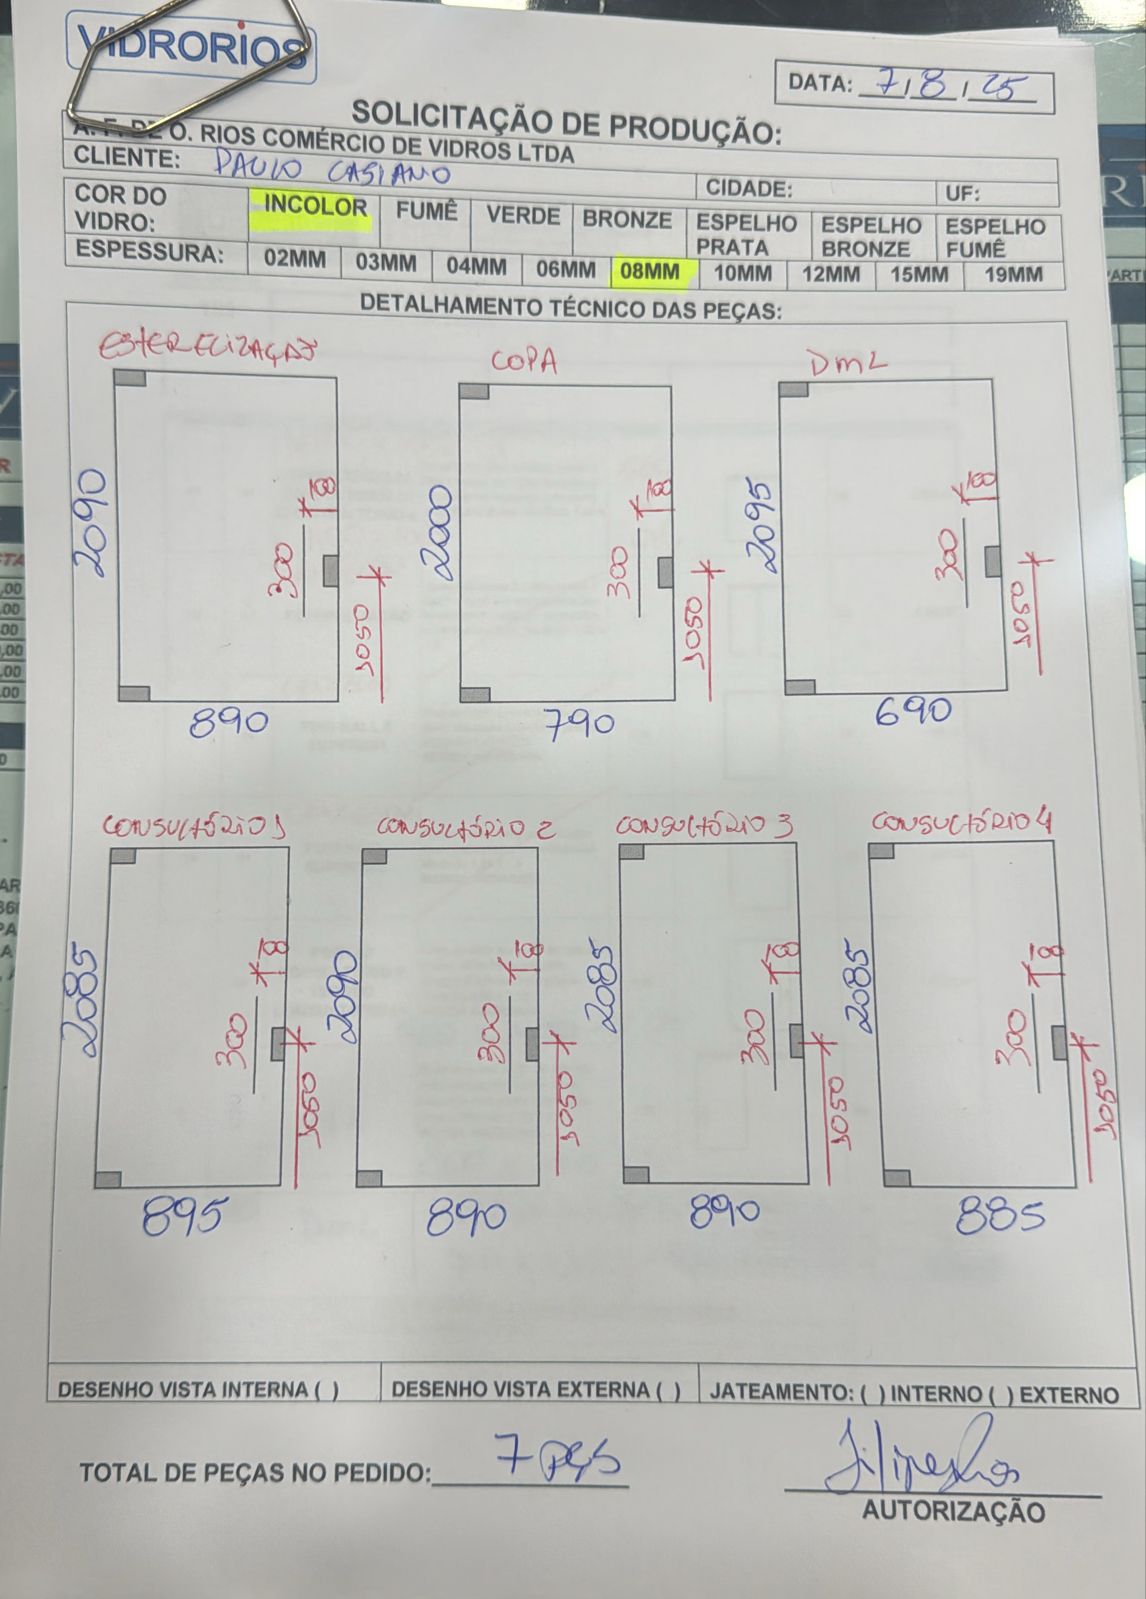 VIDRORIOS
DATA: 7/8/25
SOLICITAÇÃO DE PRODUÇÃO:
A. F. DE O. RIOS COMÉRCIO DE VIDROS LTDA
CLIENTE: PAULO CASIANO CIDADE: UF:
COR DO VIDRO: INCOLOR FUMÊ VERDE BRONZE ESPELHO PRATA ESPELHO BRONZE ESPELHO FUMÊ
ESPESSURA: 02MM 03MM 04MM 06MM 08MM 10MM 12MM 15MM 19MM
DETALHAMENTO TÉCNICO DAS PEÇAS:
ESTERELIZAÇÃO COPA DML
2090 300 100 1050 2000 300 100 1050 2095 300 100 1050
890 790 690
CONSULTÓRIO 1 CONSULTÓRIO 2 CONSULTÓRIO 3 CONSULTÓRIO 4
2085 300 100 1050 2090 300 100 1050 2085 300 100 1050 2085 300 100 1050
895 890 890 885
DESENHO VISTA INTERNA ( ) DESENHO VISTA EXTERNA ( ) JATEAMENTO: ( ) INTERNO ( ) EXTERNO
TOTAL DE PEÇAS NO PEDIDO: 7 PÇS
AUTORIZAÇÃO